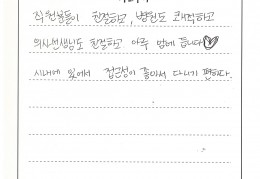 직원분들이 친절하고, 병원도 쾌적하고
의사선생님도 친절하고 아주 맘에 듭니다♡
시내에 있어서 접근성이 좋아서 다니기 편하다.